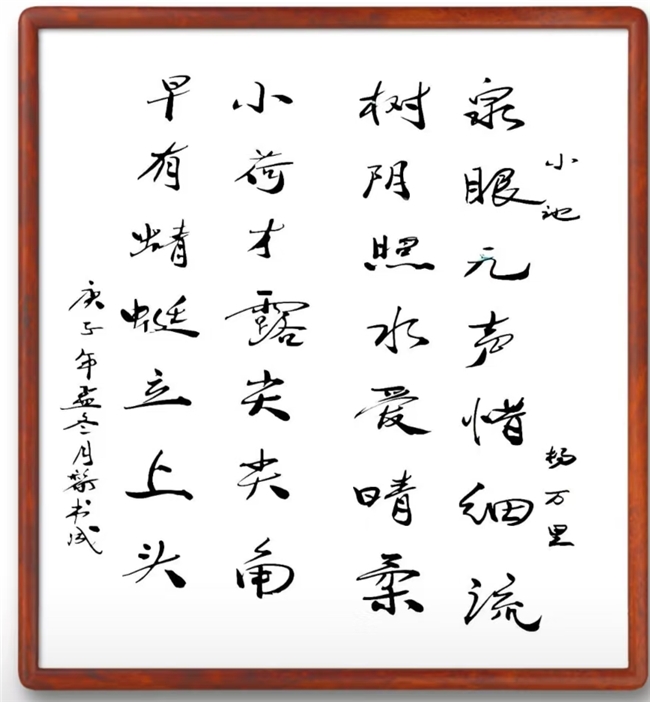 小池
杨万里
泉眼无声惜细流
树阴照水爱晴柔
小荷才露尖尖角
早有蜻蜓立上头
庚子年孟冬月黎书成